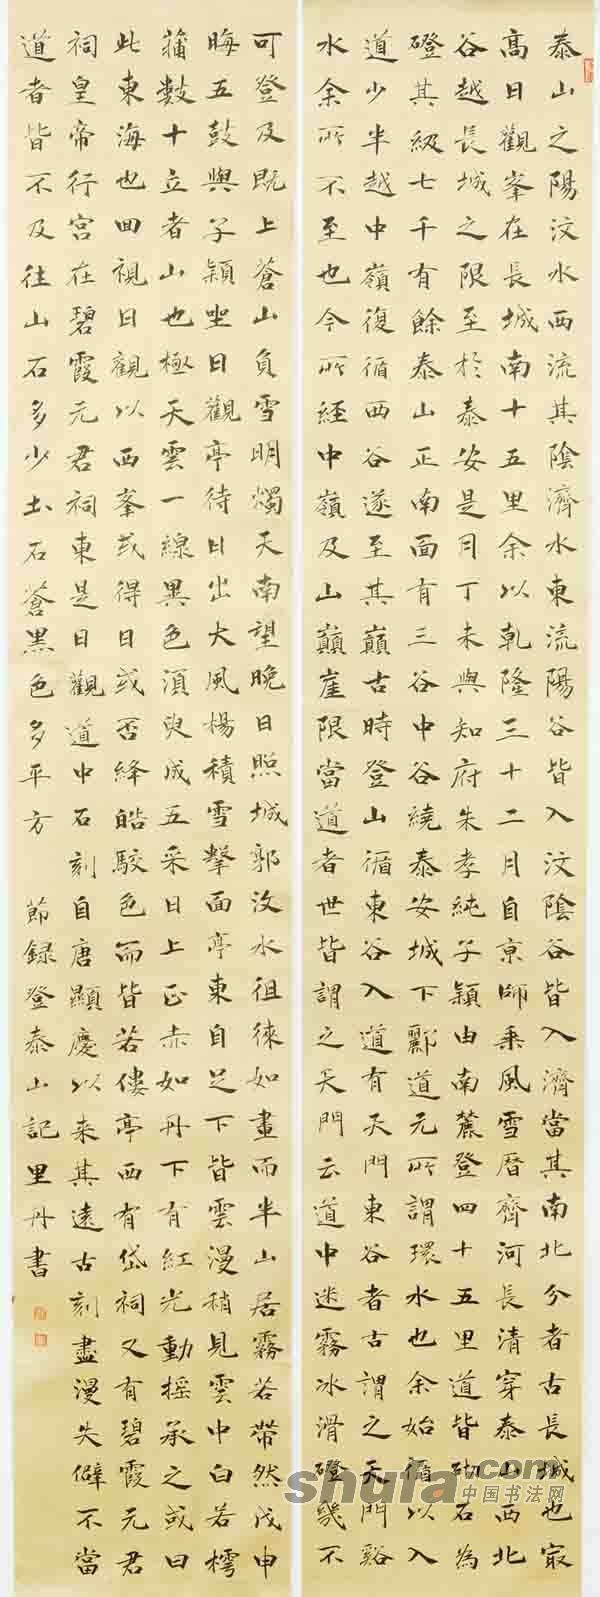 泰山之陽汶水西流其陰濟水東流陽谷皆入汶陰谷皆入濟當其南北分者古長城也冣
高日觀峯在長城南十五里余以乾隆三十二月自京師乘風雪曆齊河長清穿泰山西北
谷越長城之限至於泰安是月丁未與知府朱孝純子穎由南麓登四十五里道皆砌石為
磴其級七千有餘泰山正南面有三谷中谷繞泰安城下酈道元所謂環水也余始循以入
道少半越中嶺復循西谷遂至其巔古時登山循東谷入道有天門東谷者古謂之天門谿
水余所不至也今所經中嶺及山巔崖限當道者世皆謂之天門云道中迷霧冰滑磴幾不
可登及既上蒼山負雪明燭天南望晚日照城郭汶水徂徠如畫而半山居霧若帶然戊申
晦五鼓與子穎坐日觀亭待日出大風楊積雪擊面亭東自足下皆雲漫稍見雲中白若樗
蒱數十立者山也極天雲一線異色須臾成五采日上正赤如丹下有紅光動摇承之或曰
此東海也回視日觀以西峯或得日或否絳皓駮色而皆若僂亭西有岱祠又有碧霞元君
祠皇帝行宮在碧霞元君祠東是日觀道中石刻自唐顯慶以来其遠古刻盡漫失僻不當
道者皆不及往山石多少土石蒼黑色多平方 節録登泰山記里丹書
shufa.com
中国书法网